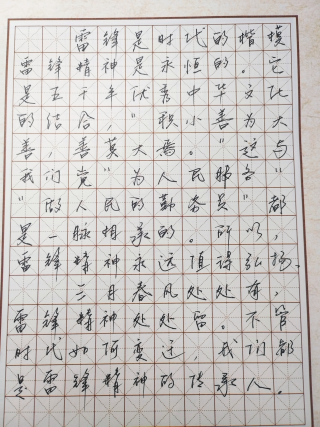 雷锋是时代的楷模
雷锋精神是永恒的。它
是五千年优秀中华文化
的结合，"积小善为大
善，善莫大焉。"这与
我们党"为人民服务"
"做人民的勤务员"都
是一脉相承的。所以，
雷锋精神永远值得弘扬。
三月春风处处有，
雷锋精神处处留。不管
时代如何变迁，我们都
是雷锋精神的传承人。